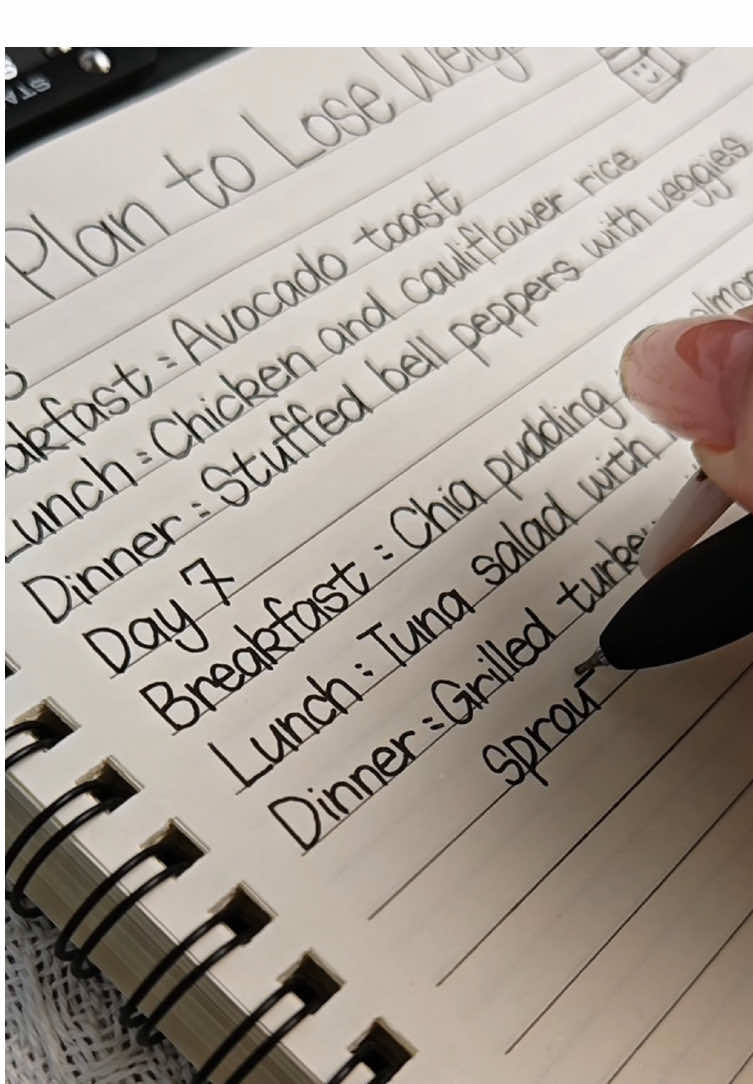 STA
Plan to Lose
Avocado toast
Lunch: Chicken and cauliflower rice
Dinner: Stuffed bell peppers with veggies
Day 7
Breakfast: Chia pudding
Lunch: Tuna salad with
Dinner: Grilled
sprou